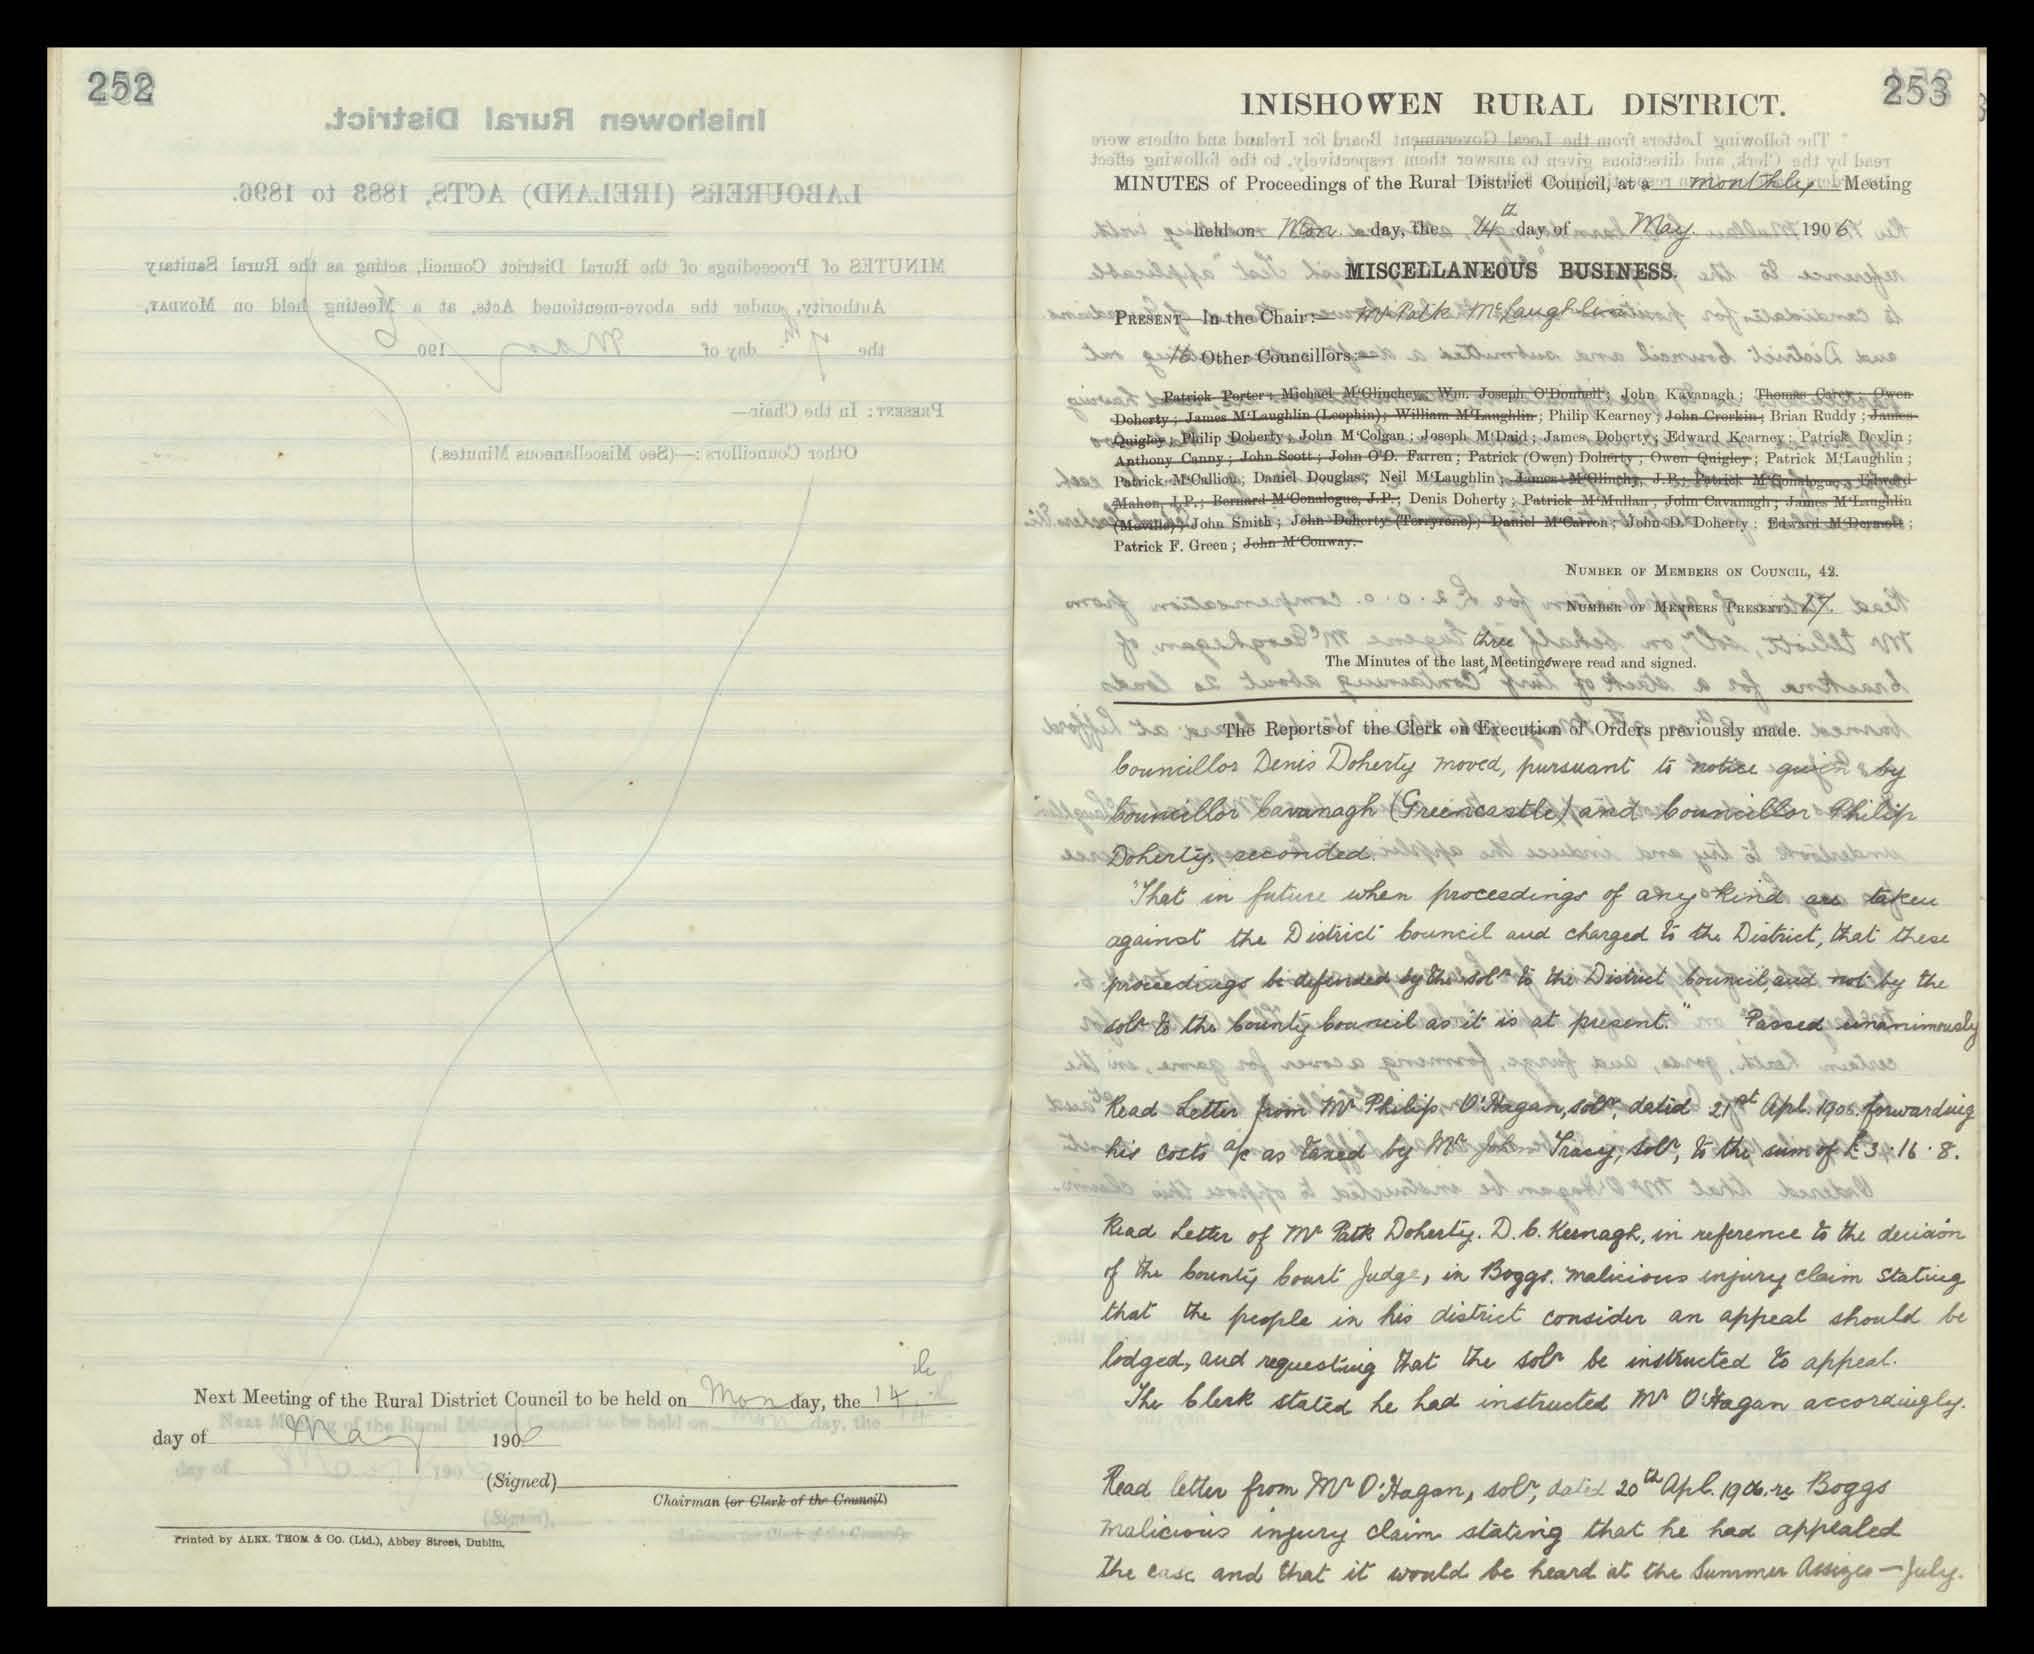 252
Next Meeting of the Rural District Council to be held on Monday, the 14th
day of May 1906
(Signed)
Chairman (or Clerk of the Council)
Printed by ALEX. THOM & Co. (Ltd.), Abbey Street, Dublin.
253
INISHOWEN RURAL DISTRICT.
MINUTES of Proceedings of the Rural District Council, at a monthly Meeting
held on Mon. day, the 14th day of May. 1906.
MISCELLANEOUS BUSINESS.
PRESENT—In the Chair:— Mr Patk McLaughlin
16 Other Councillors:—
Patrick Porter; Michael M'Glinchey; Wm. Joseph O'Donnell; John Kavanagh; Thomas Carey; Owen
Doherty; James M'Laughlin (Leophin); William M'Laughlin; Philip Kearney; John Crorkin; Brian Ruddy; James
Quigley; Philip Doherty; John M'Colgan; Joseph M'Daid; James Doherty; Edward Kearney; Patrick Devlin;
Anthony Canny; John Scott; John O'D. Farren; Patrick (Owen) Doherty; Owen Quigley; Patrick M'Laughlin;
Patrick M'Callion; Daniel Douglas; Neil M'Laughlin; James M'Glinchy, J.P.; Patrick M'Gonalogue; Edward
Mahon, J.P.; Bernard M'Conalogue, J.P.; Denis Doherty; Patrick M'Mullan; John Cavanagh; James M'Laughlin
(Moville); John Smith; John Doherty (Terryrone); Daniel M'Carron; John D. Doherty; Edward M'Dermott;
Patrick F. Green; John M'Conway.
NUMBER OF MEMBERS ON COUNCIL, 42.
NUMBER OF MEMBERS PRESENT, 17.
The Minutes of the last three Meetings were read and signed.
The Reports of the Clerk on Execution of Orders previously made.
Councillor Denis Doherty moved, pursuant to notice given by
Councillor Cavanagh (Greencastle) and Councillor Philip
Doherty. seconded.
"That in future when proceedings of any kind are taken
against the District Council and charged to the District, that these
proceedings be defended by the solr to the District Council, and not by the
solr to the County Council as it is at present." Passed unanimously
Read Letter from Mr Philip O'Hagan, solr, dated 21st Apl. 1906. forwarding
his costs a/c as taxed by Mr John Tracy, solr, to the sum of £3.16.8.
Read Letter of Mr Patk Doherty. D.C. Kernagh, in reference to the decision
of the County Court Judge, in Boggs. malicious injury claim stating
that the people in his district consider an appeal should be
lodged, and requesting that the solr be instructed to appeal.
The Clerk stated he had instructed Mr O'Hagan accordingly.
Read letter from Mr O'Hagan, solr, dated 20th Apl. 1906. re Boggs
malicious injury claim stating that he had appealed
the case and that it would be heard at the Summer Assizes — July.